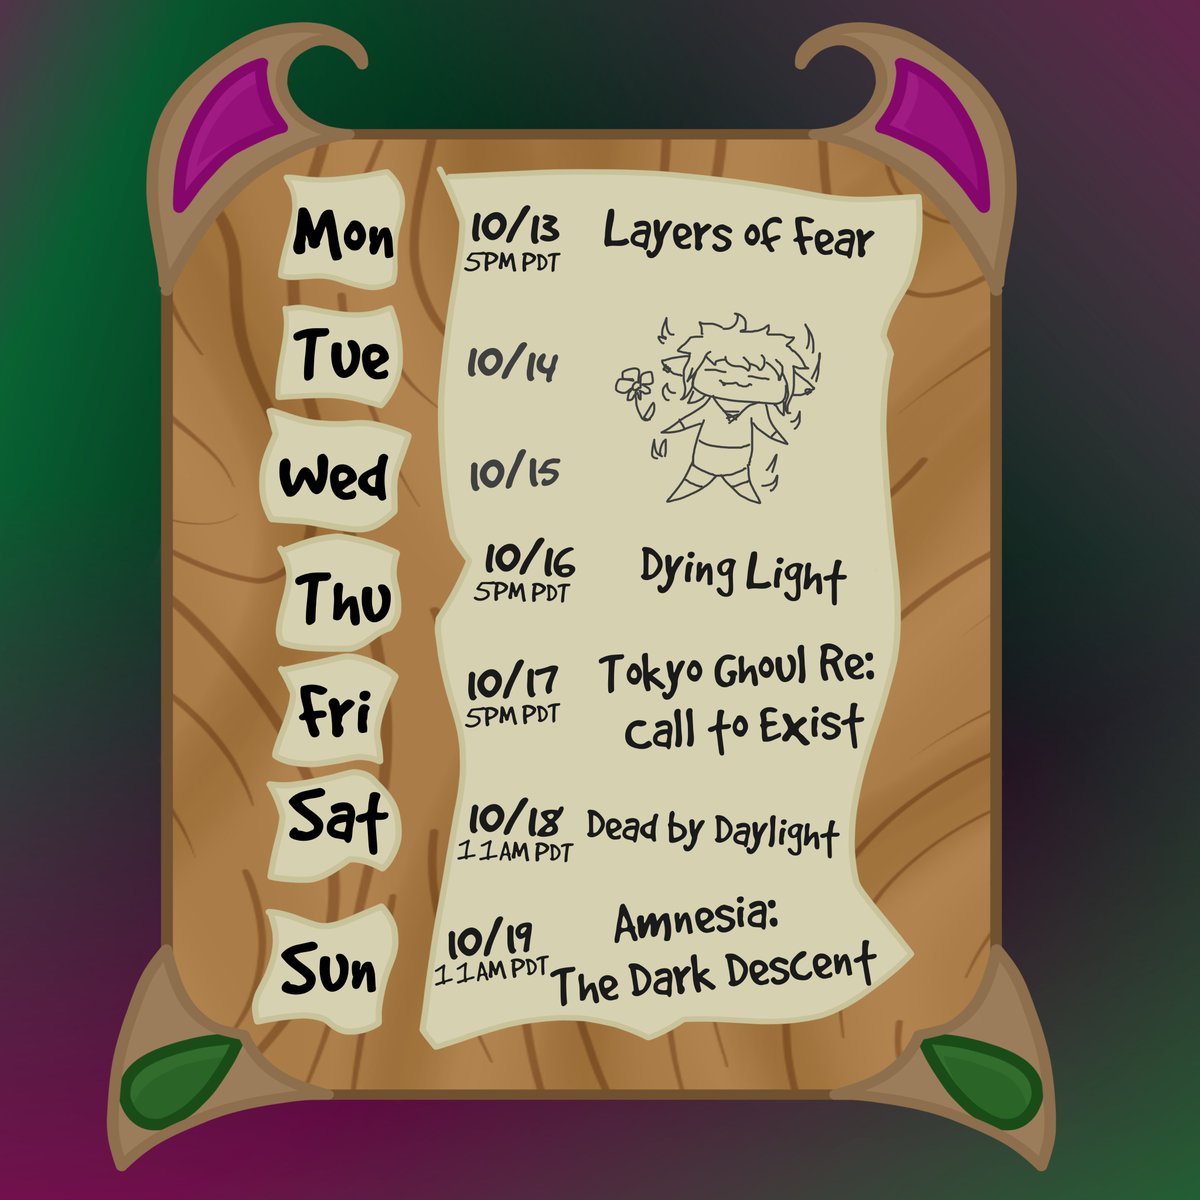 Mon
10/13 Layers of Fear
5PM PDT
Tue
10/14
Wed
10/15
Thu
10/16 Dying Light
5PM PDT
Fri
10/17 Tokyo Ghoul Re:
5PM PDT call to Exist
Sat
10/18 Dead by Daylight
11AM PDT
Sun
10/19 Amnesia:
11AM PDT The Dark Descent